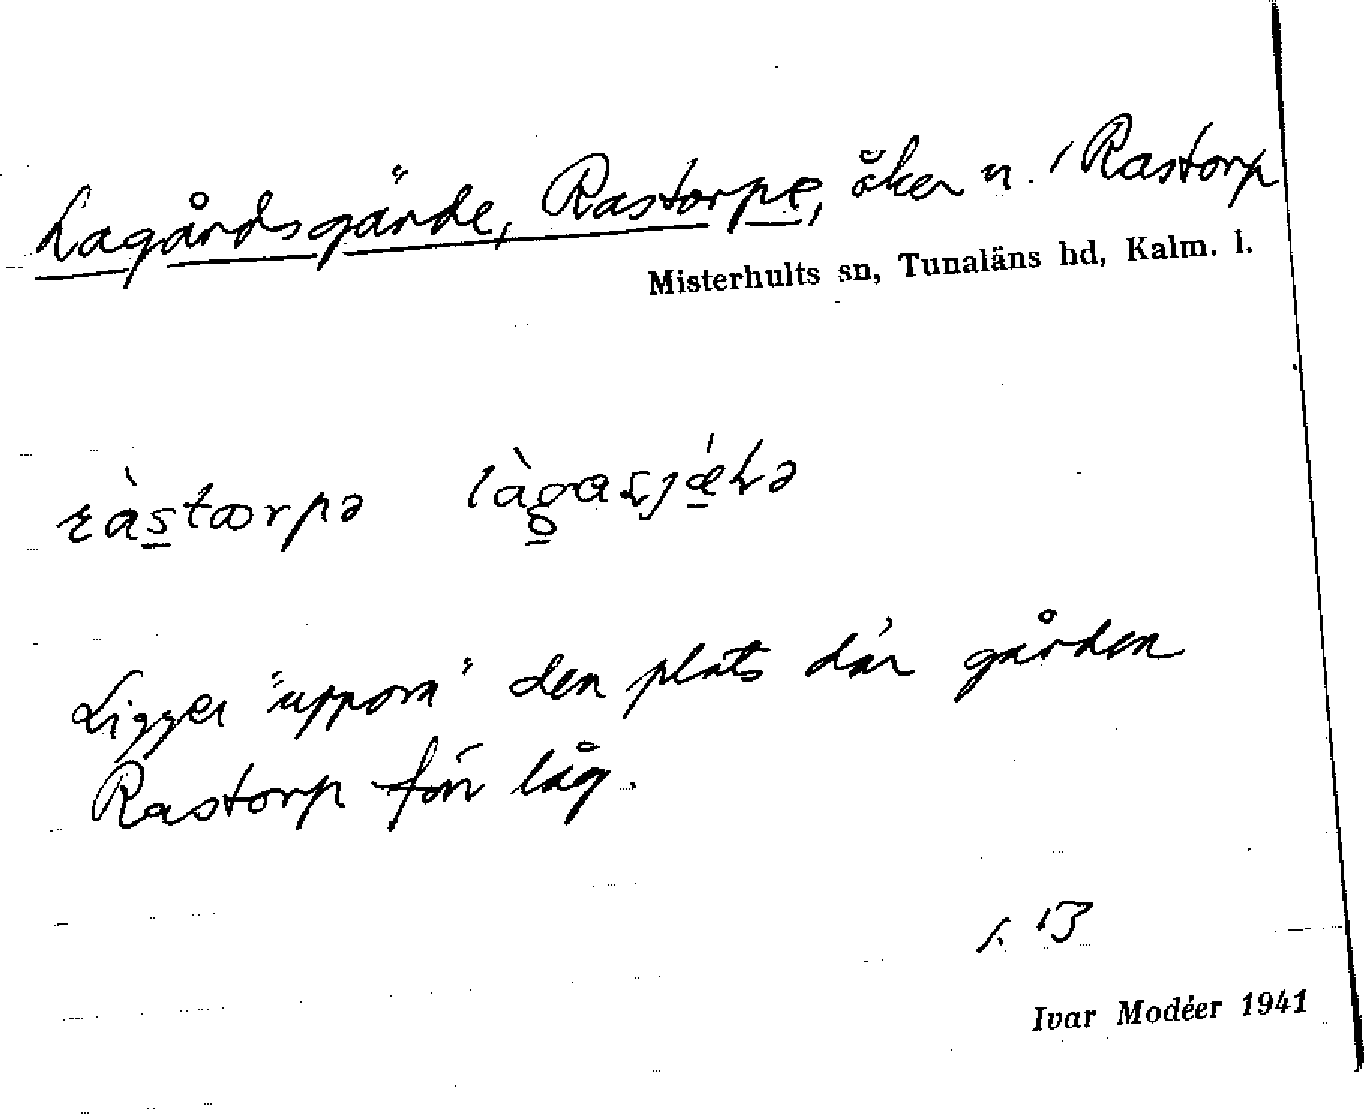 Lagårdsgärde, Rastorpe, åker n. i Rastorp
Misterhults sn, Tunaläns hd, Kalm. l.
Ligger "uppom" den plats där gården
Rastorp förr låg.
Ivar Modéer 1941